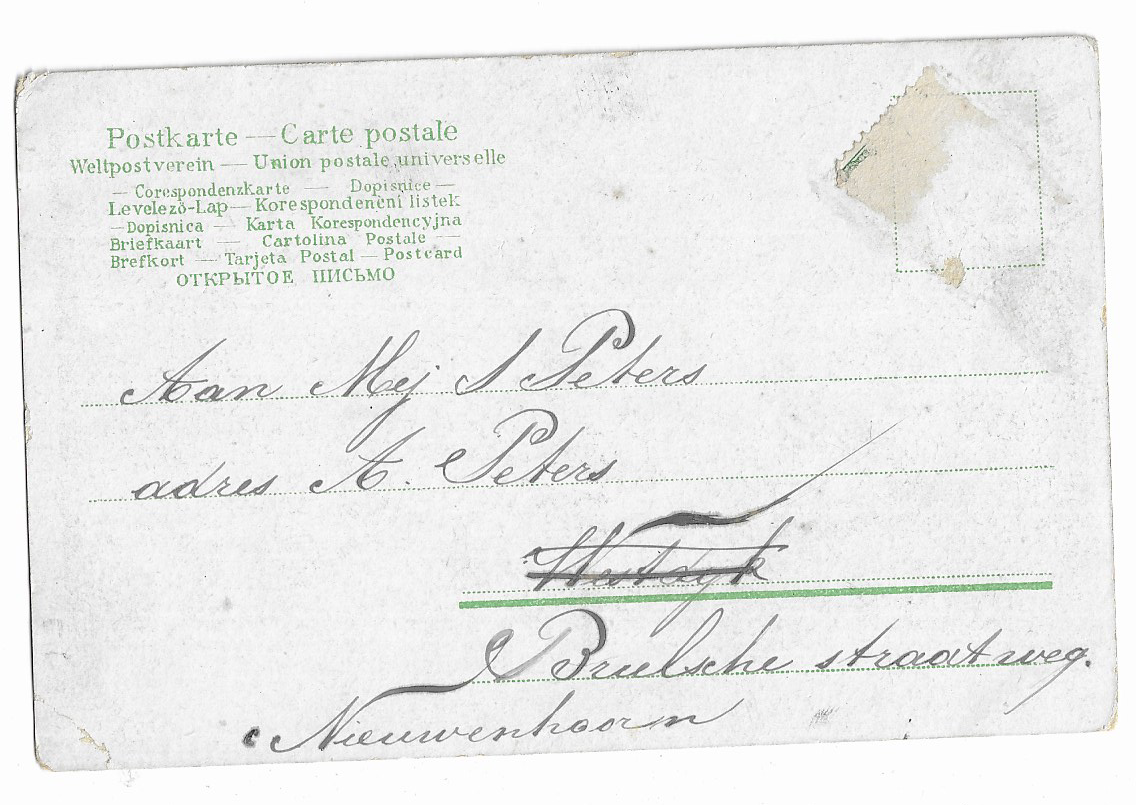 Postkarte — Carte postale
Weltpostverein — Union postale universelle
— Corespondenzkarte — Dopisnice —
Levelező-Lap — Korespondenční listek
— Dopisnica — Karta Korespondencyjna
Briefkaart — Cartolina Postale —
Brefkort — Tarjeta Postal — Postcard
ОТКРЫТОЕ ПИСЬМО
Aan Mej S Peters
adres A. Peters
Westdyk
Brielsche straatweg.
Nieuwenhoorn